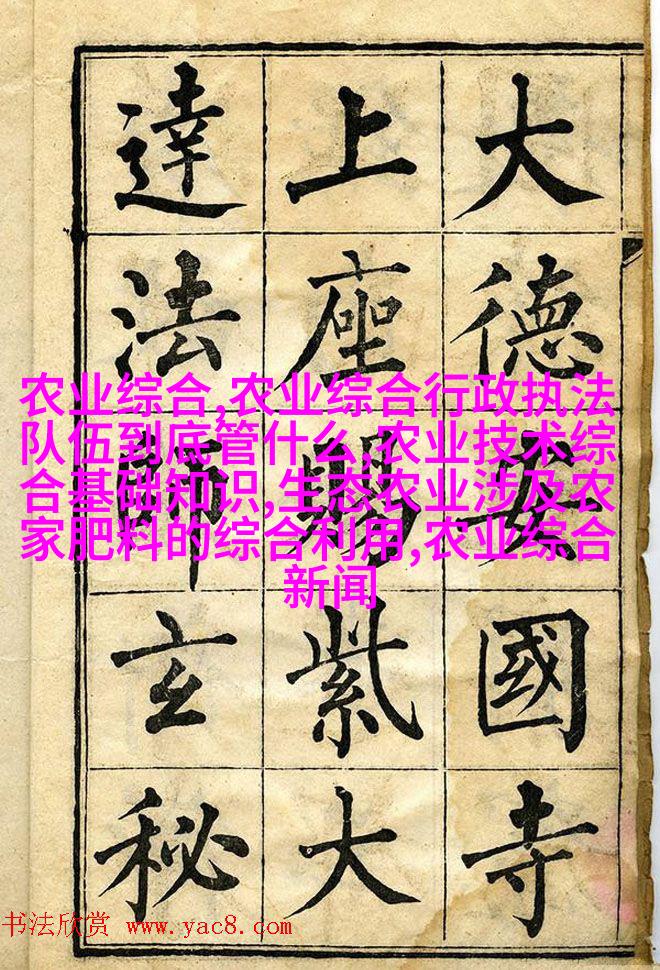 大德安國寺
上座賜紫大
達法師玄秘
农业综合,农业综合行政执法
队伍到底管什么,农业技术综
合基础知识,生态农业涉及农
家肥料的综合利用,农业综合
新闻
书法欣赏 www.yac8.com